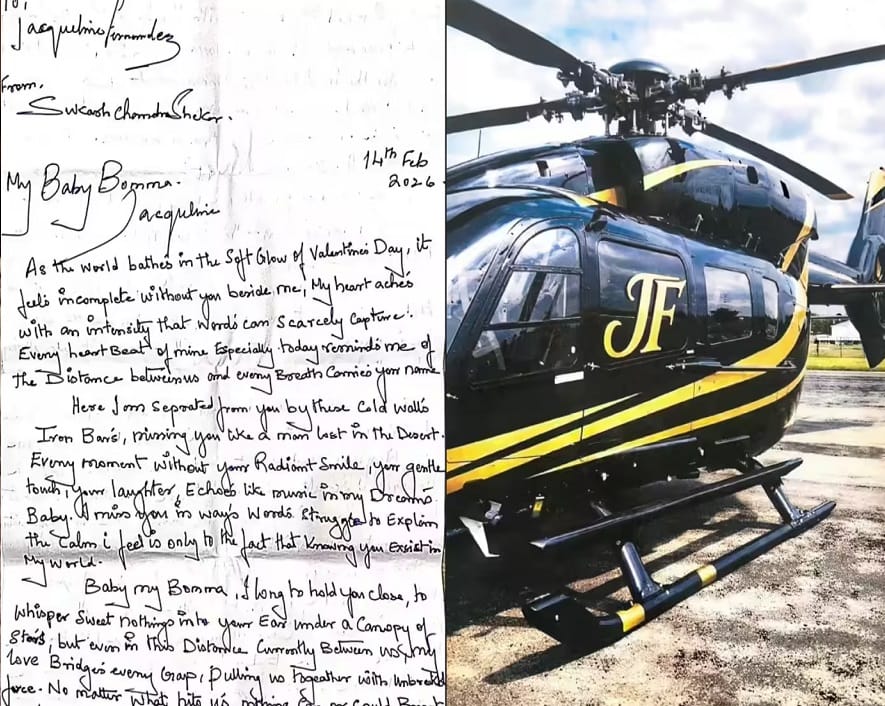 To,
Jacqueline Fernandez
From,
Sukash Chandra Shekar.
14th Feb
2026
My Baby Bomma.
Jacqueline
As the World bathes in the Soft Glow of Valentines Day, it
feels incomplete without you beside me, My heart aches
with an intensity that Words can Scarcely Capture.
Every heart Beat of mine Especially today reminds me of
the Distance between us and every Breath Carries your name
Here I am Seprated from you by these Cold Walls
Iron Bars, missing you like a man lost in the Desert.
Every moment without your Radiant Smile, your gentle
touch, your laughter, Echoes like music in my Dreams
Baby. I miss you in ways Words Struggle to Explain
the Calm i feel is only to the fact that Knowing you Exsist in
My World.
Baby my Bomma, I long to hold you Close, to
Whisper Sweet nothings into your Ear under a Canopy of
Stars, but even in this Distance Currently Between us, my
love Bridges every Gap, Pulling us Togeather with
force. No matter What hits us, nothing
JF